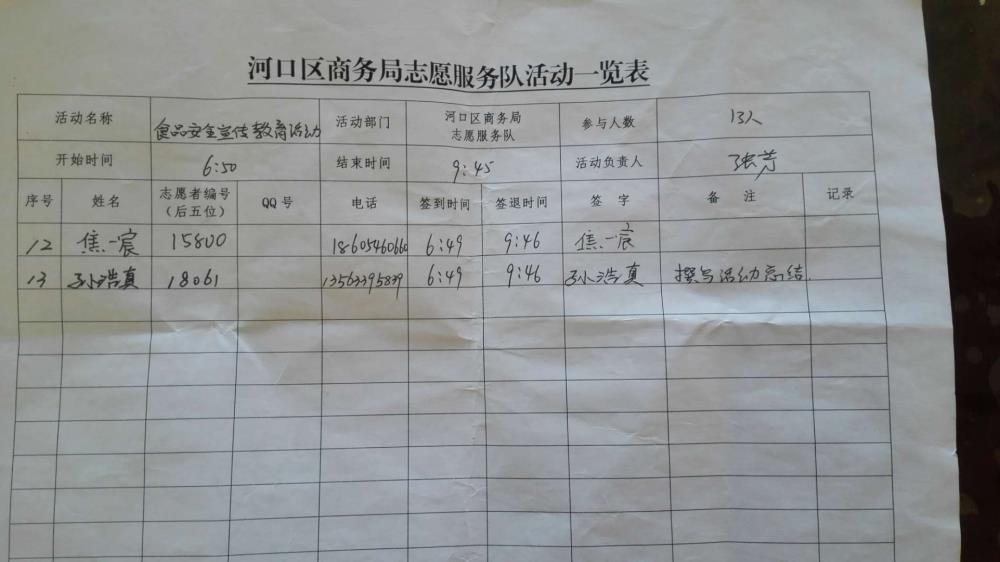 河口区商务局志愿服务队活动一览表
活动名称 食品安全宣传教育活动 活动部门 河口区商务局志愿服务队 参与人数 13人
开始时间 6:50 结束时间 9:45 活动负责人 张芳
序号 姓名 志愿者编号（后五位） QQ号 电话 签到时间 签退时间 签字 备注 记录
12 焦一宸 15800 18605460660 6:49 9:46 焦一宸
13 孙浩真 18061 13563395839 6:49 9:46 孙浩真 撰写活动总结